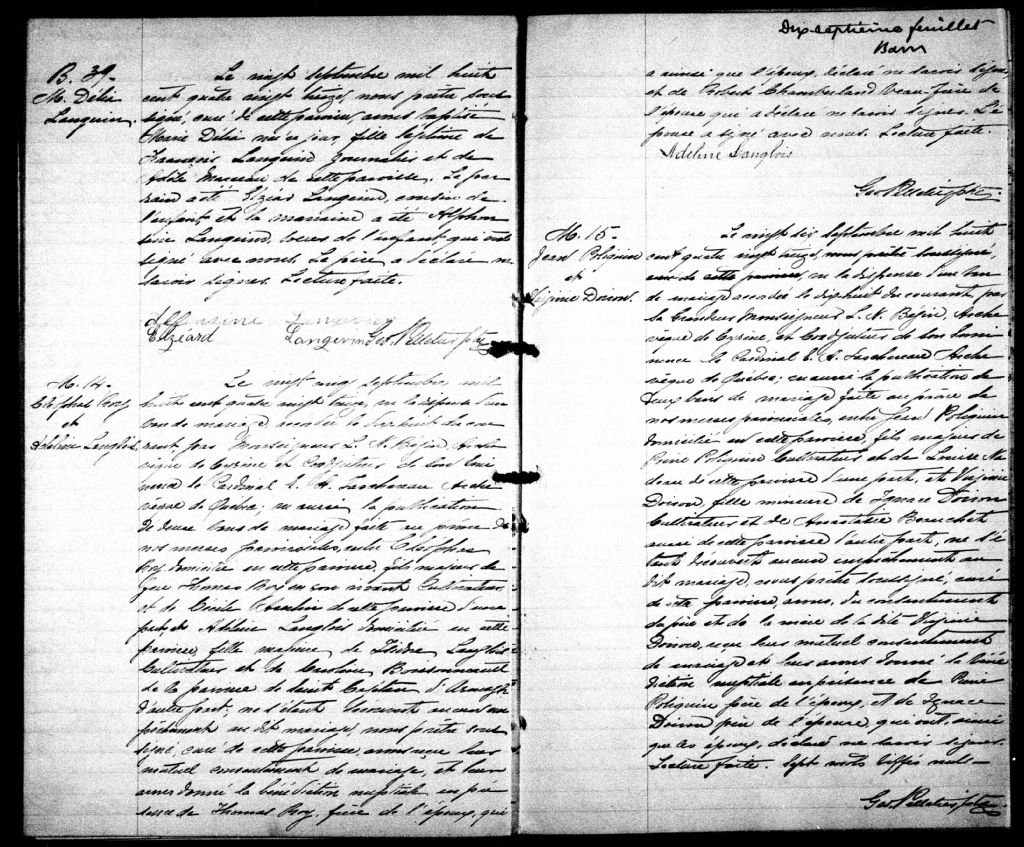 B. 39-
M. Délia
Languin.
Le vingt septembre mil huit
cent quatre vingt treize, nous prêtre sous
signé, curé de cette paroisse, avons baptisé
Marie Délia née ce jour, fille légitime de
François Languin Journalier et de
Adèle Marceau de cette paroisse. Le par
rain a été Elzéar Languin, cousin de
l'enfant et la marraine a été Alphon
sine Languin, soeur de l'enfant qui ont
signé avec nous. Le père a déclaré ne
savoir signer. Lecture faite.
Alfonsine Langevin
Elzéard Langevin Geo. Pelletier Ptre
M. 14-
Cléophas Roy
et
Adeline Langlois.
Le vingt cinq septembre mil
huit cent quatre vingt treize, vu la dispense d'un
ban de mariage accordée le dix huit du cou
rant par Monseigneur L. N. Bégin, Arche
vêque de Cyrène et Coadjuteur de Son Emi
nence le Cardinal E. A. Taschereau Arche
vêque de Québec; vu aussi la publication
de deux bans de mariage faite au prône de
nos messes paroissiales, entre Cléophas
Roy domicilié en cette paroisse, fils majeur de
feu Thomas Roy en son vivant Cultivateur
et de Cécile de cette paroisse d'une
part, et Adeline Langlois domiciliée en cette
paroisse, fille majeure de Isidore Langlois
Cultivateur et de Caroline Boissonneault
de la paroisse de Saint Cajetan d'Armagh
d'autre part; ne s'étant découvert aucun em
pêchement au dit mariage, nous prêtre sous
signé, curé de cette paroisse, avons reçu leur
mutuel consentement de mariage, et leur
avons donné la bénédiction nuptiale en pré
sence de Thomas Roy, frère de l'époux, qui
Dix-septième feuillet
a ainsi que l'époux, déclaré ne savoir signer
et de Norbert Chamberland beau-frère de
l'épouse qui a déclaré ne savoir signer. L'é
pouse a signé avec nous. Lecture faite.
Adeline Langlois
Geo. Pelletier Ptre
M. 15-
Jean Poliquin
et
Virginie Doiron.
Le vingt six septembre mil huit
cent quatre vingt treize, nous prêtre soussigné,
curé de cette paroisse, vu la dispense d'un ban
de mariage accordée le dix huit du courant, par
Sa Grandeur Monseigneur L. N. Bégin, Arche
vêque de Cyrène, et Coadjuteur de Son Emi
nence le Cardinal E. A. Taschereau Arche
vêque de Québec; vu aussi la publication de
deux bans de mariage faite au prône de
nos messes paroissiales, entre Jean Poliquin
domicilié en cette paroisse, fils majeur de
Poliquin Cultivateur et de Louise Na
deau de cette paroisse d'une part, et Virginie
Doiron, fille mineure de Ignace Doiron
Cultivateur et de Anastasie Bouchet
aussi de cette paroisse d'autre part, ne s'é
tant découvert aucun empêchement au
dit mariage, nous prêtre soussigné, curé
de cette paroisse, avons, du consentement
du père et de la mère de la dite Virginie
Doiron, reçu leur mutuel consentement
de mariage et leur avons donné la béné
diction nuptiale en présence de
Poliquin père de l'époux, et de Ignace
Doiron père de l'épouse, qui ont, ainsi
que les époux, déclaré ne savoir signer.
Lecture faite. Sept mots biffés nuls-
Geo. Pelletier Ptre